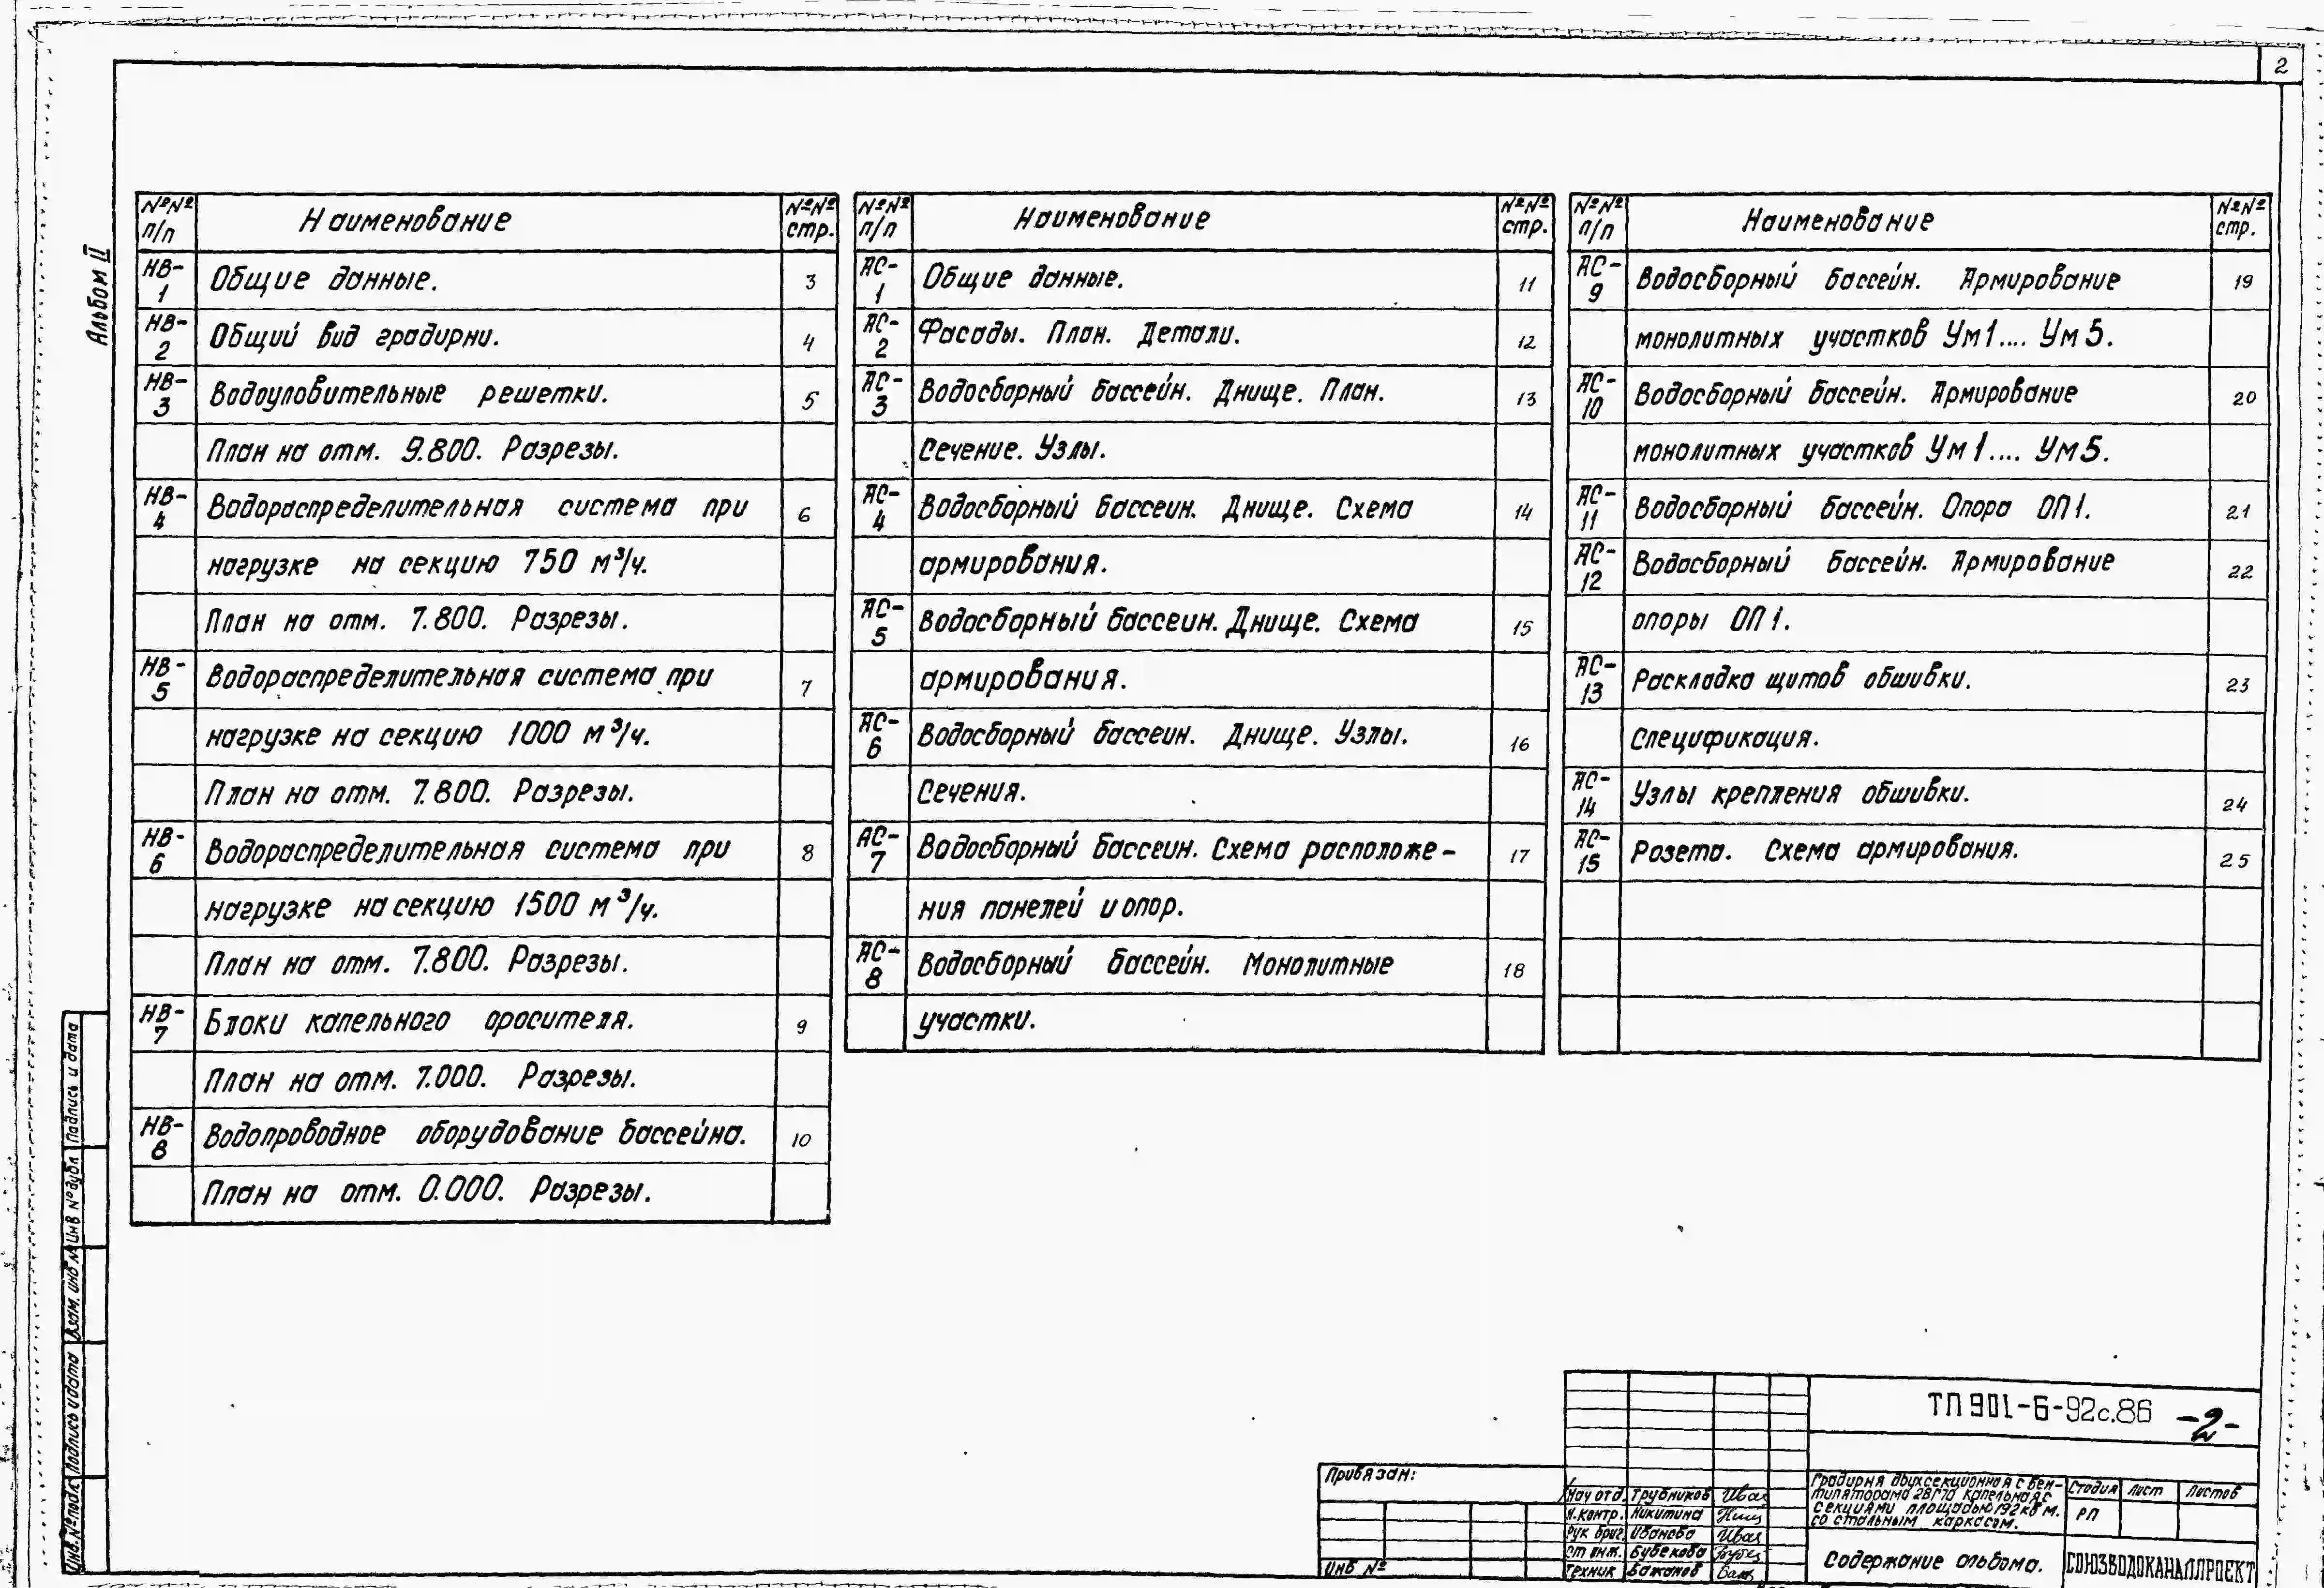 2
Альбом II
№№ п/п Наименование №№ стр.
НВ-1 Общие данные. 3
НВ-2 Общий вид градирни. 4
НВ-3 Водоуловительные решетки. 5
План на отм. 9.800. Разрезы.
НВ-4 Водораспределительная система при 6
нагрузке на секцию 750 м³/ч.
План на отм. 7.800. Разрезы.
НВ-5 Водораспределительная система при 7
нагрузке на секцию 1000 м³/ч.
План на отм. 7.800. Разрезы.
НВ-6 Водораспределительная система при 8
нагрузке на секцию 1500 м³/ч.
План на отм. 7.800. Разрезы.
НВ-7 Блоки капельного оросителя. 9
План на отм. 7.000. Разрезы.
НВ-8 Водопроводное оборудование бассейна. 10
План на отм. 0.000. Разрезы.
№№ п/п Наименование №№ стр.
АС-1 Общие данные. 11
АС-2 Фасады. План. Детали. 12
АС-3 Водосборный бассейн. Днище. План. 13
Сечение. Узлы.
АС-4 Водосборный бассеин. Днище. Схема 14
армирования.
АС-5 Водосборный бассеин. Днище. Схема 15
армирования.
АС-6 Водосборный бассеин. Днище. Узлы. 16
Сечения.
АС-7 Водосборный бассеин. Схема расположе- 17
ния панелей и опор.
АС-8 Водосборный бассейн. Монолитные 18
участки.
№№ п/п Наименование №№ стр.
АС-9 Водосборный бассейн. Армирование 19
монолитных участков Ум1.... Ум5.
АС-10 Водосборный бассейн. Армирование 20
монолитных участков Ум1.... Ум5.
АС-11 Водосборный бассейн. Опора ОП1. 21
АС-12 Водосборный бассейн. Армирование 22
опоры ОП1.
АС-13 Раскладка щитов обшивки. 23
Спецификация.
АС-14 Узлы крепления обшивки. 24
АС-15 Розета. Схема армирования. 25
Инв.№подл. Подпись и дата Взам. инв № Инв № дубл Подпись и дата
Привязан:
Инв №
ТП 901-6-92с.86 -2-
Нач отд. Трубников
Н.контр. Никитина
Рук бриг. Иванова
Ст инж. Бубекова
Техник Бажанов
Градирня двухсекционная с вен-
тиляторами 2ВГ70 капельная с
секциями площадью 192 кв м.
со стальным каркасом.
Стадия Лист Листов
РП
Содержание альбома.
СОЮЗВОДОКАНАЛПРОЕКТ